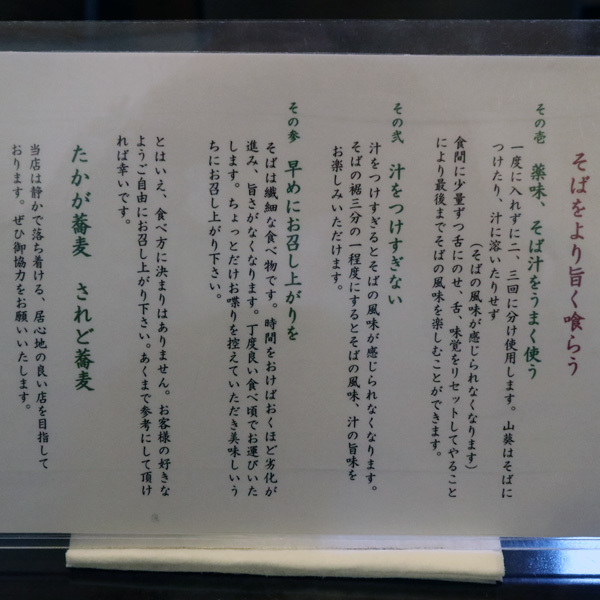 そばをより旨く喰らう
その壱 薬味、そば汁をうまく使う
一度に入れずに二、三回に分け使用します。山葵はそばに
つけたり、汁に溶いたりせず
(そばの風味が感じられなくなります)
食間に少量ずつ舌にのせ、舌、味覚をリセットしてやること
により最後までそばの風味を楽しむことができます。
その弐 汁をつけすぎない
汁をつけすぎるとそばの風味が感じられなくなります。
そばの裾三分の一程度にするとそばの風味、汁の旨味を
お楽しみいただけます。
その参 早めにお召し上がりを
そばは繊細な食べ物です。時間をおけばおくほど劣化が
進み、旨さがなくなります。丁度良い食べ頃でお運びいた
します。ちょっとだけお喋りを控えていただき美味しいう
ちにお召し上がり下さい。
とはいえ、食べ方に決まりはありません。お客様の好きな
ようご自由にお召し上がり下さい。あくまで参考にして頂け
れば幸いです。
たかが蕎麦 されど蕎麦
当店は静かで落ち着ける、居心地の良い店を目指して
おります。ぜひ御協力をお願いいたします。